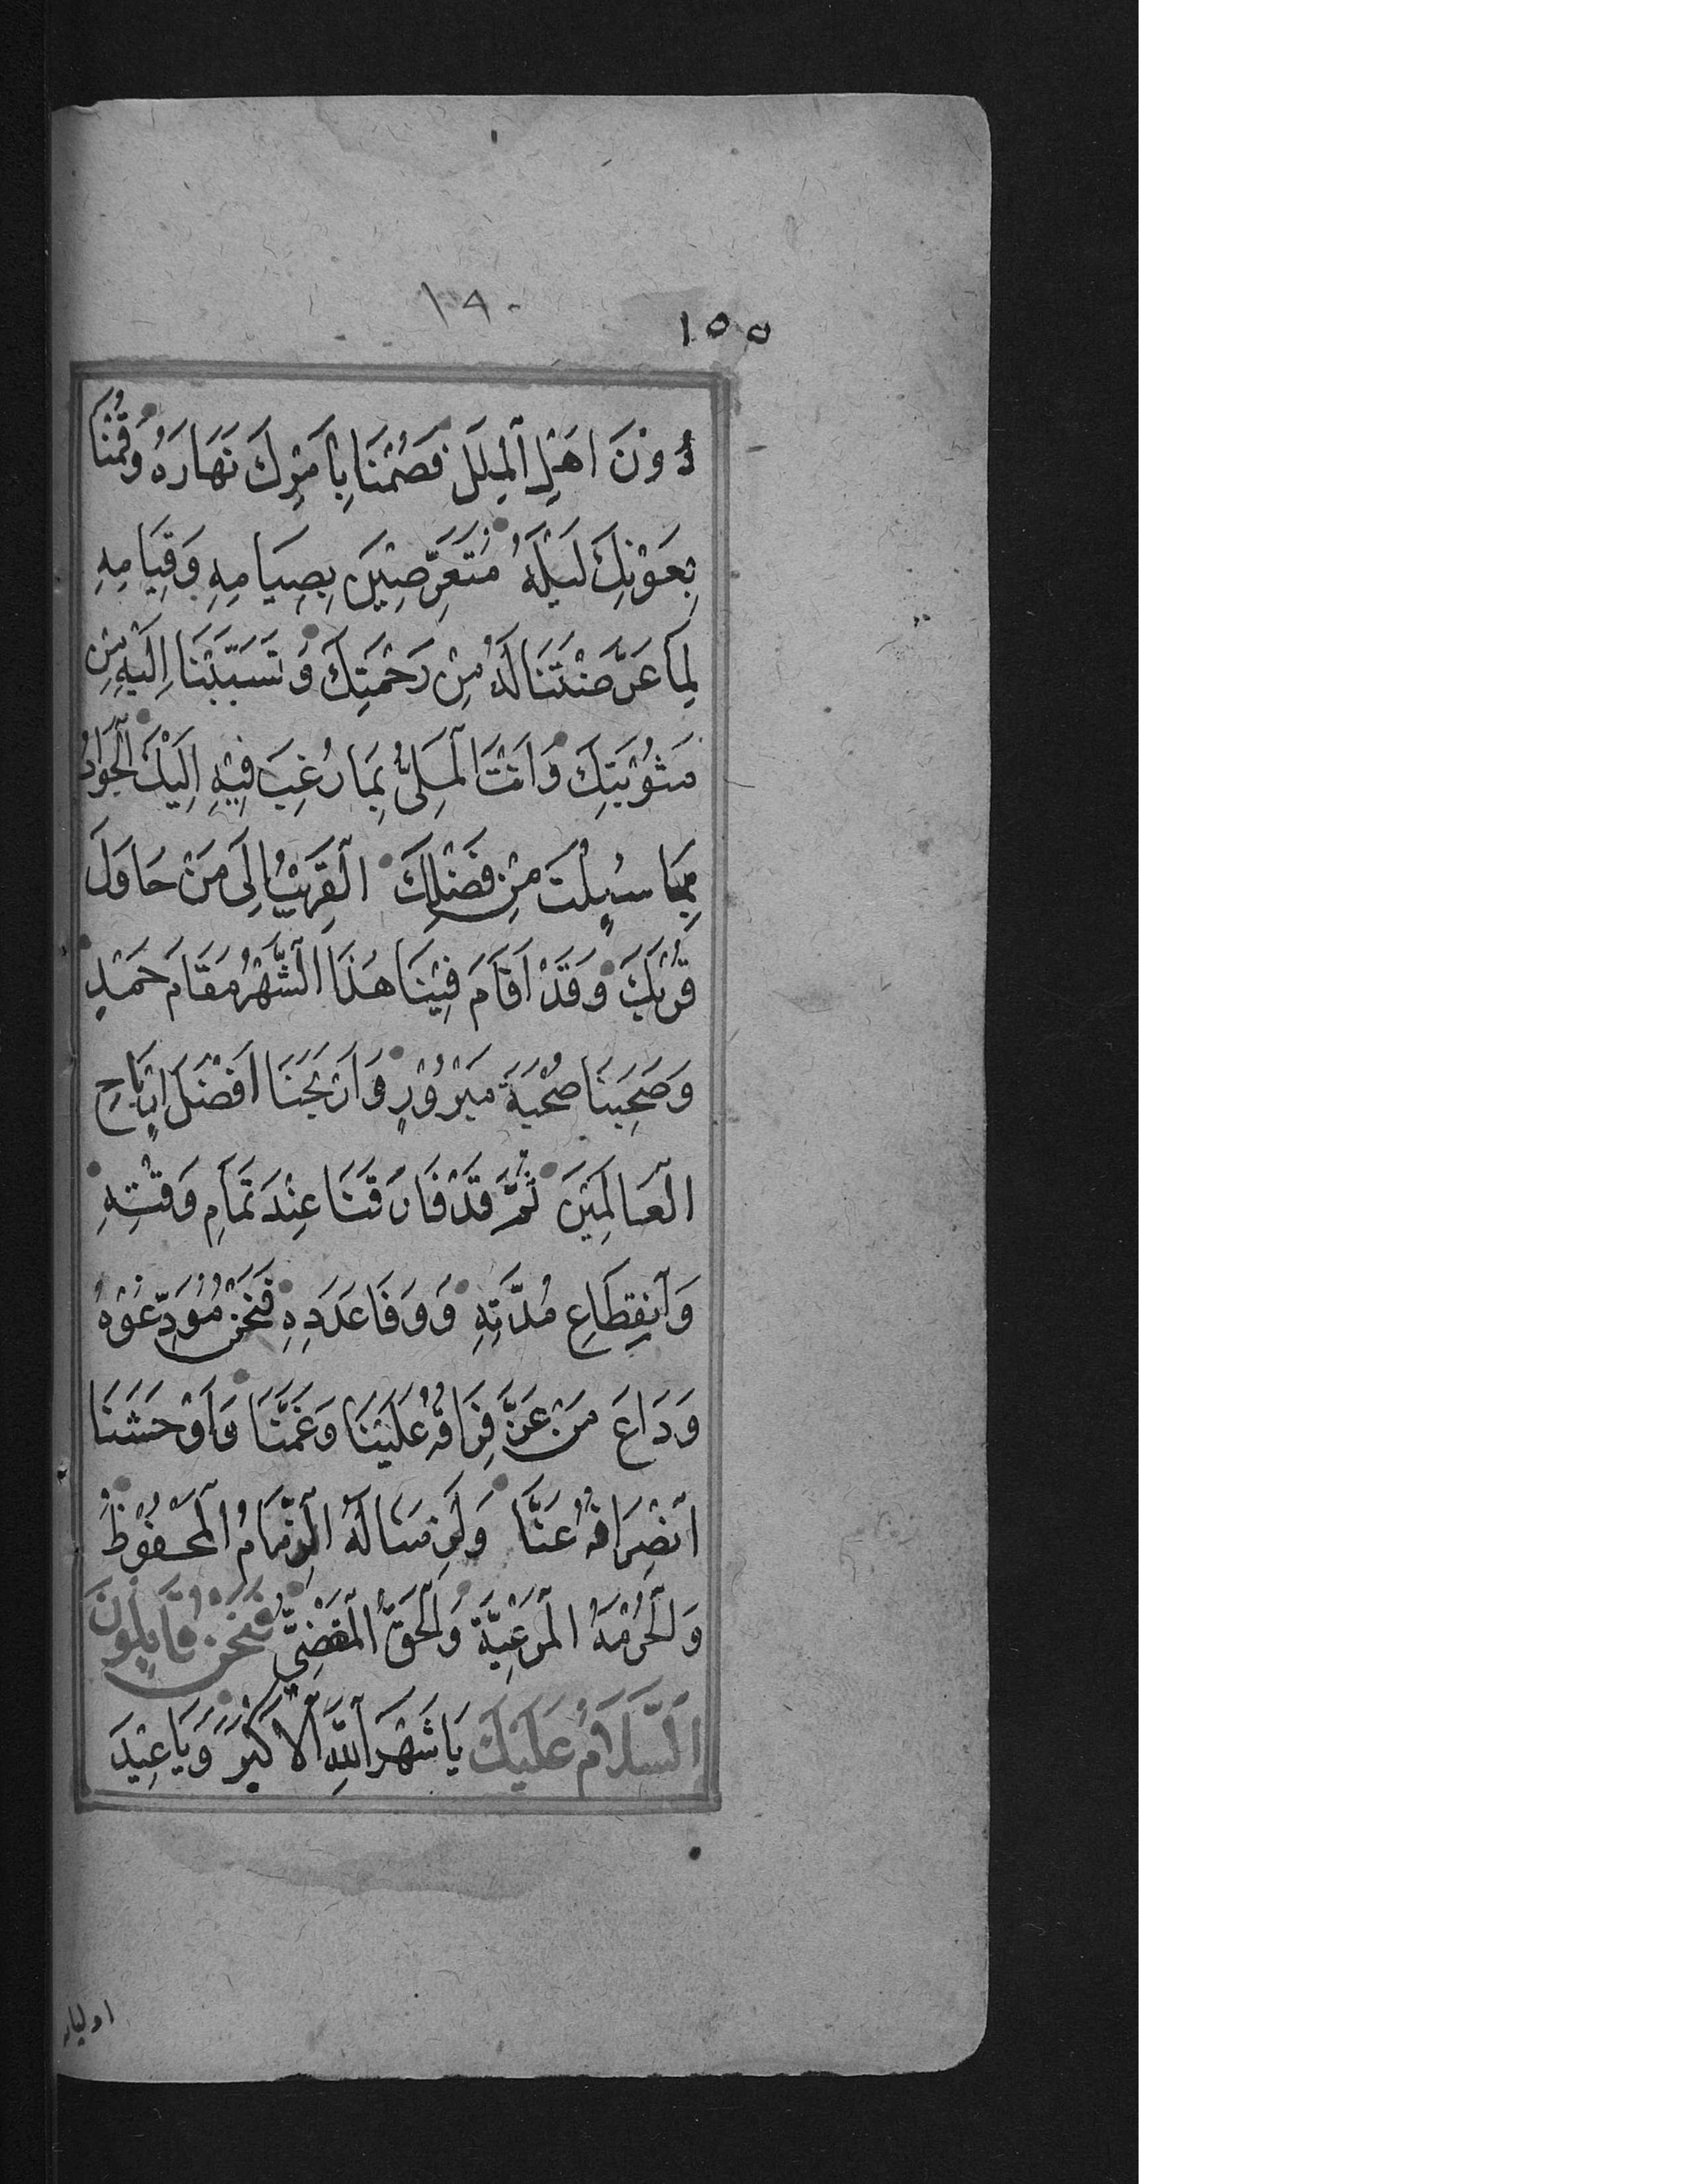 ١٩٠
١٥٥
دُوْنَ اَهْلِ ٱلْمِلَلِ فَصُمْنَا بِاَمْرِكَ نَهَارَهُ وَقُمْنَا
بِعَوْنِكَ لَيْلَهُ مُتَعَرِّضِيْنَ بِصِيَامِهِ وَقِيَامِهِ
لِمَا عَرَّضْتَنَا لَهُ مِنْ رَحْمَتِكَ وَتَسَبَّبْنَا اِلَيْهِ مِنْ
مَثُوْبَتِكَ وَاَنْتَ ٱلْمَلِىُّ بِمَا رُغِبَ فِيْهِ اِلَيْكَ ٱلْجَوَادُ
بِمَا سُئِلْتَ مِنْ فَضْلِكَ ٱلْقَرِيْبُ اِلَى مَنْ حَاوَلَ
قُرْبَكَ وَقَدْ اَقَامَ فِيْنَا هٰذَا ٱلشَّهْرُ مَقَامَ حَمْدٍ
وَصَحِبَنَا صُحْبَةَ مَبْرُوْرٍ وَاَرْبَحَنَا اَفْضَلَ اَرْبَاحِ
ٱلْعَالَمِيْنَ ثُمَّ قَدْ فَارَقَنَا عِنْدَ تَمَامِ وَقْتِهِ
وَٱنْقِطَاعِ مُدَّتِهِ وَوَفَا عَدَدِهِ فَنَحْنُ مُوَدِّعُوْهُ
وَدَاعَ مَنْ عَزَّ فِرَاقُهُ عَلَيْنَا وَغَمَّنَا وَاَوْحَشَنَا
ٱنْصِرَافُهُ عَنَّا وَلَزِمَنَا لَهُ ٱلذِّمَامُ ٱلْمَحْفُوْظُ
وَٱلْحُرْمَةُ ٱلْمَرْعِيَّةُ وَٱلْحَقُّ ٱلْمَقْضِىُّ فَنَحْنُ قَآئِلُوْنَ
ٱلسَّلَامُ عَلَيْكَ يَا شَهْرَ ٱللّٰهِ ٱلْاَكْبَرَ وَيَا عِيْدَ
اوليائه